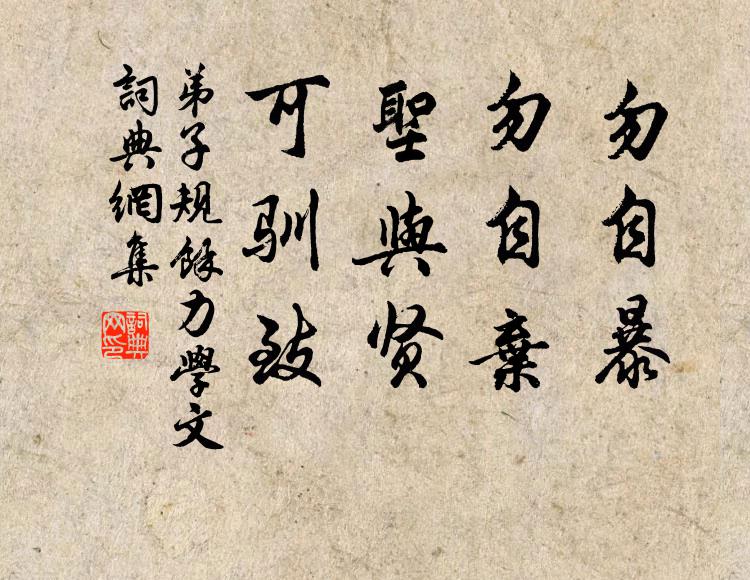 勿自暴
勿自棄
聖與贤
可驯致
弟子規餘力學文
詞典網集
詞典网印